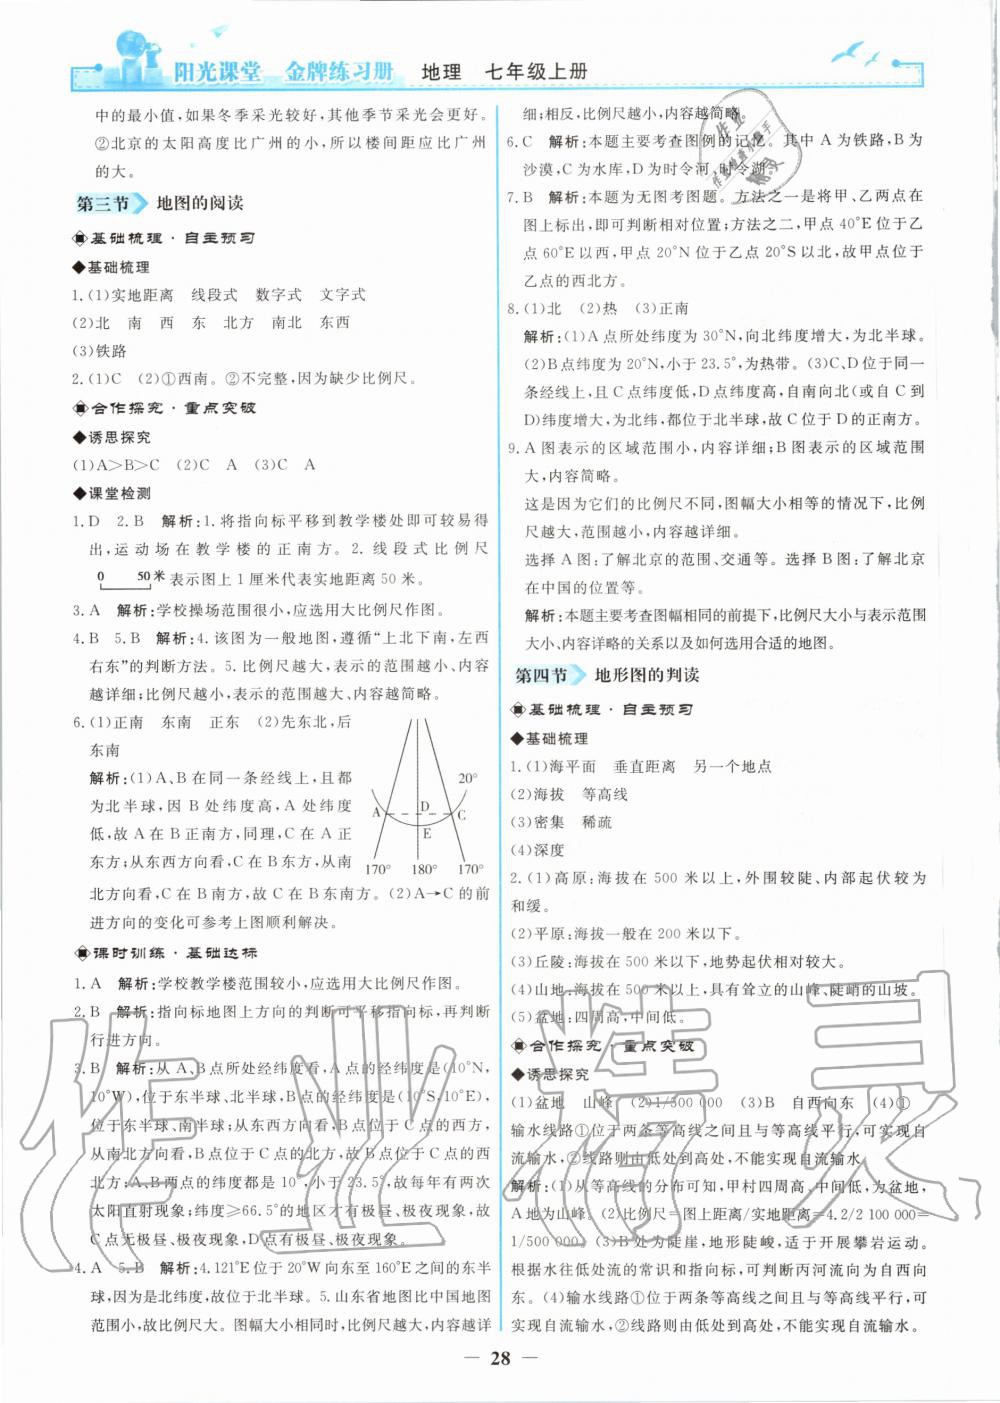 阳光课堂 金牌练习册 地理 七年级上册
中的最小值,如果冬季采光较好,其他季节采光会更好。
②北京的太阳高度比广州的小,所以楼间距应比广州
的大。
第三节 地图的阅读
基础梳理·自主预习
◆基础梳理
1.(1)实地距离 线段式 数字式 文字式
(2)北 南 西 东 北方 南北 东西
(3)铁路
2.(1)C (2)①西南。②不完整,因为缺少比例尺。
合作探究·重点突破
◆诱思探究
(1)A>B>C (2)C A (3)C A
◆课堂检测
1. D 2. B 解析:1. 将指向标平移到教学楼处即可较易得
出,运动场在教学楼的正南方。2. 线段式比例尺
0 50米 表示图上1厘米代表实地距离50米。
3. A 解析:学校操场范围很小,应选用大比例尺作图。
4. B 5. B 解析:4. 该图为一般地图,遵循“上北下南,左西
右东”的判断方法。5. 比例尺越大,表示的范围越小,内容
越详细;比例尺越小,表示的范围越大,内容越简略。
6. (1)正南 东南 正东 (2)先东北,后
东南
解析:(1)A、B在同一条经线上,且都
为北半球,因B处纬度高,A处纬度
低,故A在B正南方,同理,C在A正
东方;从东西方向看,C在B东方,从南
北方向看,C在B南方,故C在B东南方。(2)A→C的前
进方向的变化可参考上图顺利解决。
20°
A D C
E
170° 180° 170°
课时训练·基础达标
1. A 解析:学校教学楼范围较小,应选用大比例尺作图。
2. B 解析:指向标地图上方向的判断可平移指向标,再判断
行进方向。
3. B 解析:从A、B点所处经纬度看,A点的经纬度是(10°N,
10°W),位于东半球、北半球,B点的经纬度是(10°S,10°E),
位于东半球、南半球;从东西方向看,B点位于C点的东方,
从南北方向看,B点位于C点的北方,故B点位于C点的东
北方;A、B两点的纬度都是10°,小于23.5°,故每年有两次
太阳直射现象;纬度≥66.5°的地区才有极昼、极夜现象,故
C点无极昼、极夜现象,D点有极昼、极夜现象。
4. A 5. B 解析:4. 121°E位于20°W向东至160°E之间的东半
球,因为是北纬度,故位于北半球。5. 山东省地图比中国地图
范围小,故比例尺大。图幅大小相同时,比例尺越大,内容越详
细;相反,比例尺越小,内容越简略。
6. C 解析:本题主要考查图例的记忆。其中A为铁路,B为
沙漠,C为水库,D为时令河、时令湖。
7. B 解析:本题为无图考图题。方法之一是将甲、乙两点在
图上标出,即可判断相对位置;方法之二,甲点40°E位于乙
点60°E以西,甲点20°N位于乙点20°S以北,故甲点位于
乙点的西北方。
8. (1)北 (2)热 (3)正南
解析:(1)A点所处纬度为30°N,向北纬度增大,为北半球。
(2)B点纬度为20°N,小于23.5°,为热带。(3)C、D位于同一
条经线上,且C点纬度低,D点纬度高,自南向北(或自C到
D)纬度增大,为北纬,都位于北半球,故C位于D的正南方。
9. A图表示的区域范围小,内容详细;B图表示的区域范围
大,内容简略。
这是因为它们的比例尺不同,图幅大小相等的情况下,比例
尺越大,范围越小,内容越详细。
选择A图:了解北京的范围、交通等。选择B图:了解北京
在中国的位置等。
解析:本题主要考查图幅相同的前提下,比例尺大小与表示范围
大小、内容详略的关系以及如何选用合适的地图。
第四节 地形图的判读
基础梳理·自主预习
◆基础梳理
1.(1)海平面 垂直距离 另一个地点
(2)海拔 等高线
(3)密集 稀疏
(4)深度
2.(1)高原:海拔在500米以上,外围较陡、内部起伏较为
和缓。
(2)平原:海拔一般在200米以下。
(3)丘陵:海拔在500米以下,地势起伏相对较大。
(4)山地:海拔在500米以上,具有耸立的山峰、陡峭的山坡。
(5)盆地:四周高,中间低。
合作探究·重点突破
◆诱思探究
(1)盆地 山峰 (2)1/500 000 (3)B 自西向东 (4)①
输水线路①位于两条等高线之间且与等高线平行,可实现自
流输水,②线路则由低处到高处,不能实现自流输水
解析:(1)从等高线的分布可知,甲村四周高,中间低,为盆地,
A地为山峰。(2)比例尺=图上距离/实地距离=4.2/2 100 000=
1/500 000。(3)B处为陡崖,地形陡峻,适于开展攀岩运动。
根据水往低处流的常识和指向标,可判断丙河流向为自西向
东。(4)输水线路①位于两条等高线之间且与等高线平行,可
实现自流输水,②线路则由低处到高处,不能实现自流输水。
— 28 —
作业精灵